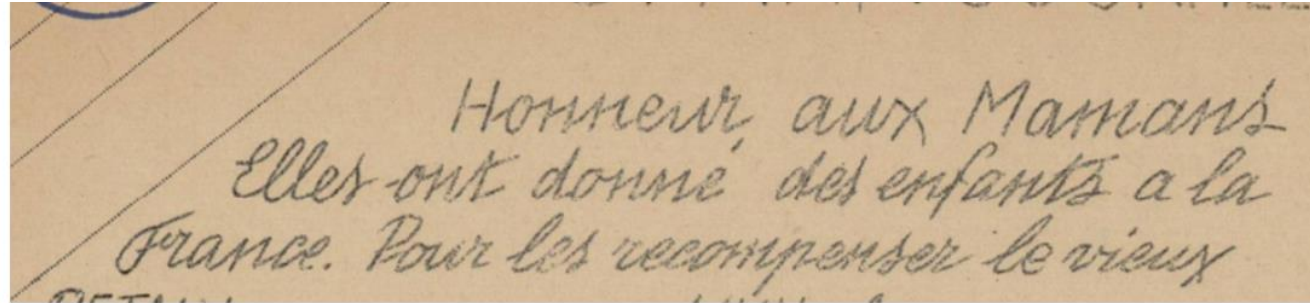 Honneur aux Mamans
Elles ont donné des enfants a la
France. Pour les recompenser le vieux